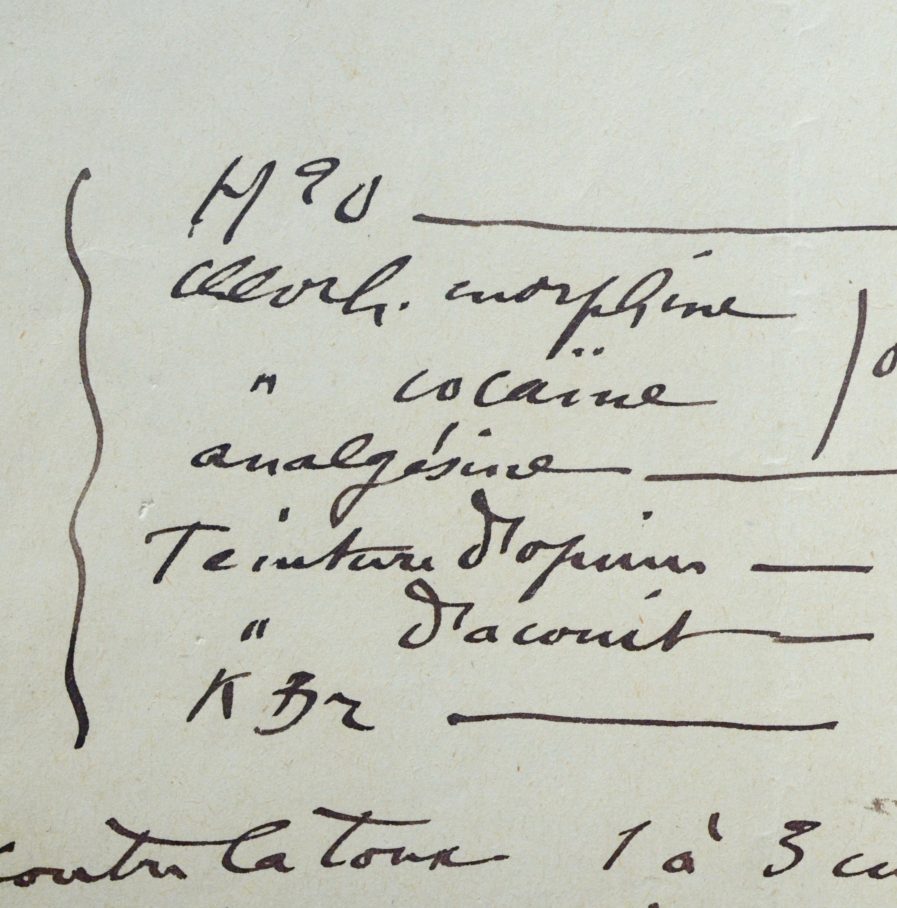 H²O
chlorh. morphine
" cocaïne
analgésine
Teinture d'opium
" d'aconit
K Br
contre la toux 1 à 3